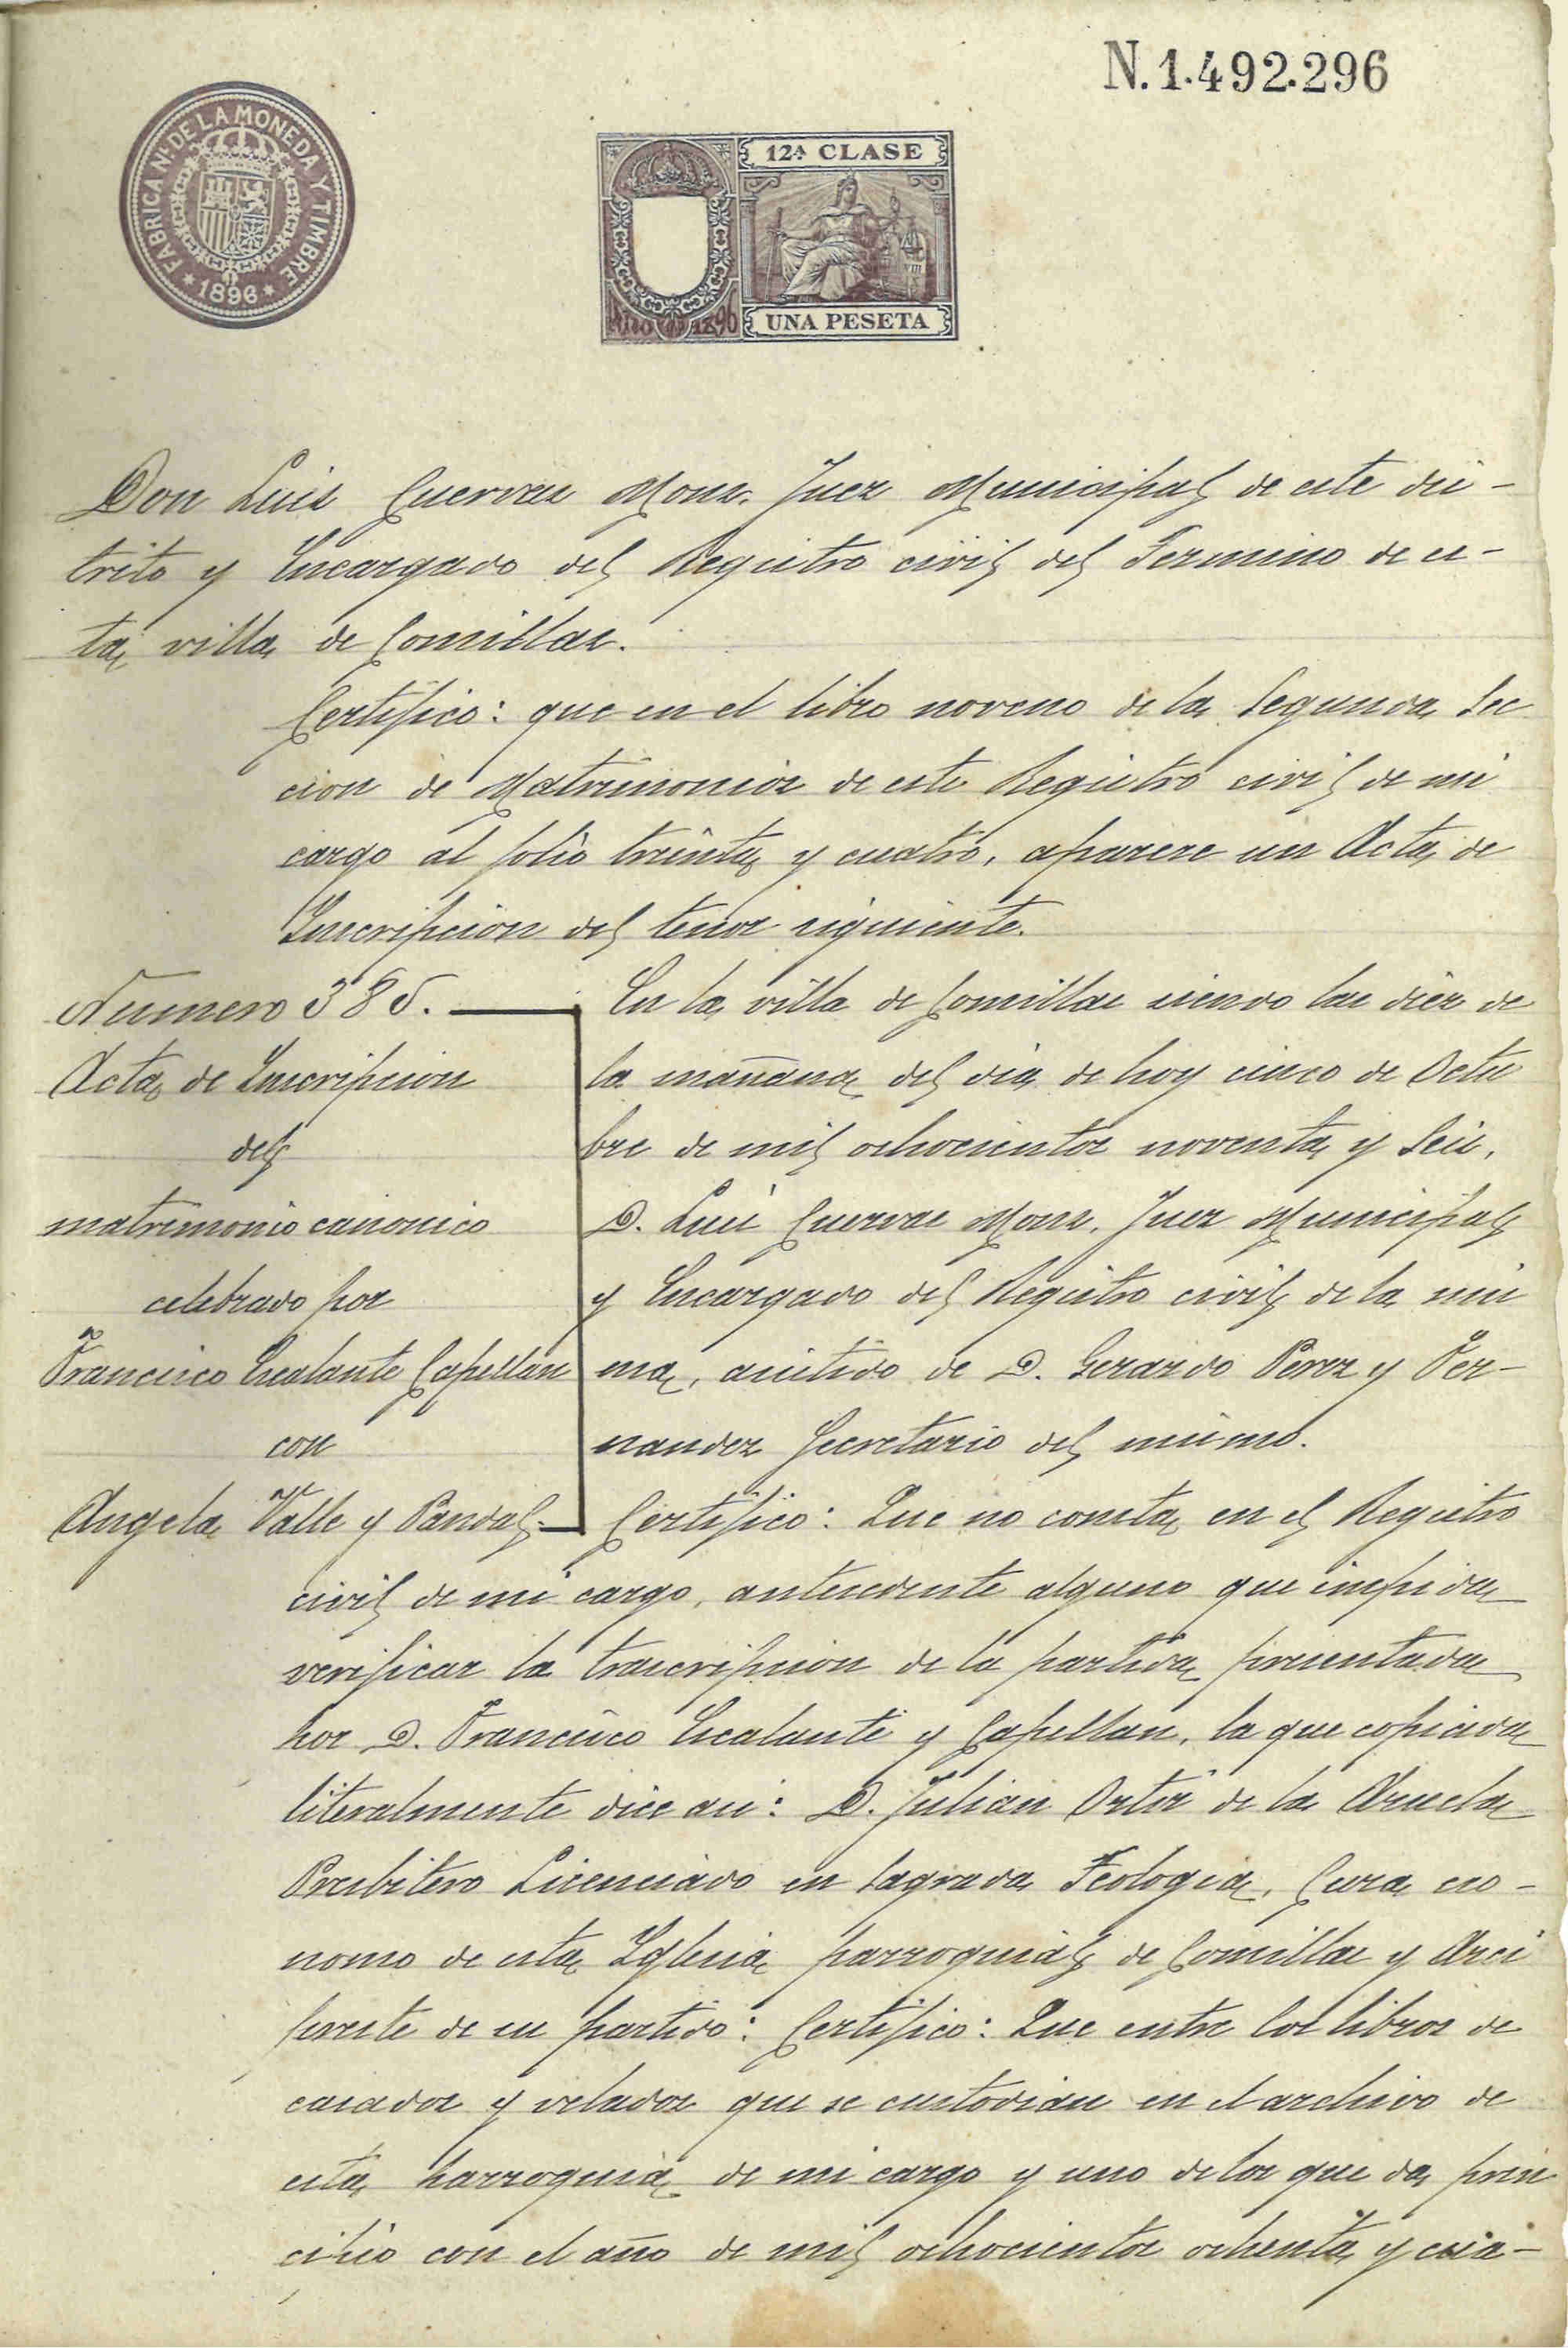 N.1.492.296
FABRICA Nl. DE LA MONEDA Y TIMBRE
* 1896 *
12ª CLASE
UNA PESETA
Don Luis Cuervas Mons. Juez Municipal de este dis-
trito y Encargado del Registro civil del Termino de es-
ta villa de Comillas.
Certifico: que en el libro noveno de la Segunda Sec
cion de Matrimonios de este Registro civil de mi
cargo al folio treinta y cuatro, aparece un Acta de
Inscripcion del tenor siguiente.
Numero 385.
Acta de Inscripcion
del
matrimonio canonico
celebrado por
Francisco Escalante Capellan
con
Angela Valle y Pandal.
En la villa de Comillas siendo las diez de
la mañana del dia de hoy cinco de Octu
bre de mil ochocientos noventa y Seis,
D. Luis Cuervas Mons, Juez Municipal
y Encargado del Registro civil de la mis
ma, asistido de D. Gerardo Perez y Fer-
nandez Secretario del mismo.
Certifico: Que no consta en el Registro
civil de mi cargo, antecedente alguno que impida
verificar la trascripcion de la partida presentada
por D. Francisco Escalante y Capellan, la que copiada
literalmente dice asi: D. Julian Ortiz de la
Presbitero Licenciado en Sagrada Teologia, Cura eco-
nomo de esta Yglesia parroquial de Comillas y Arci
preste de su partido: Certifico: Que entre los libros de
casados y velados que se custodian en el archivo de
esta parroquia de mi cargo y uno de los que da prin
cipio con el año de mil ochocientos ochenta y cua-